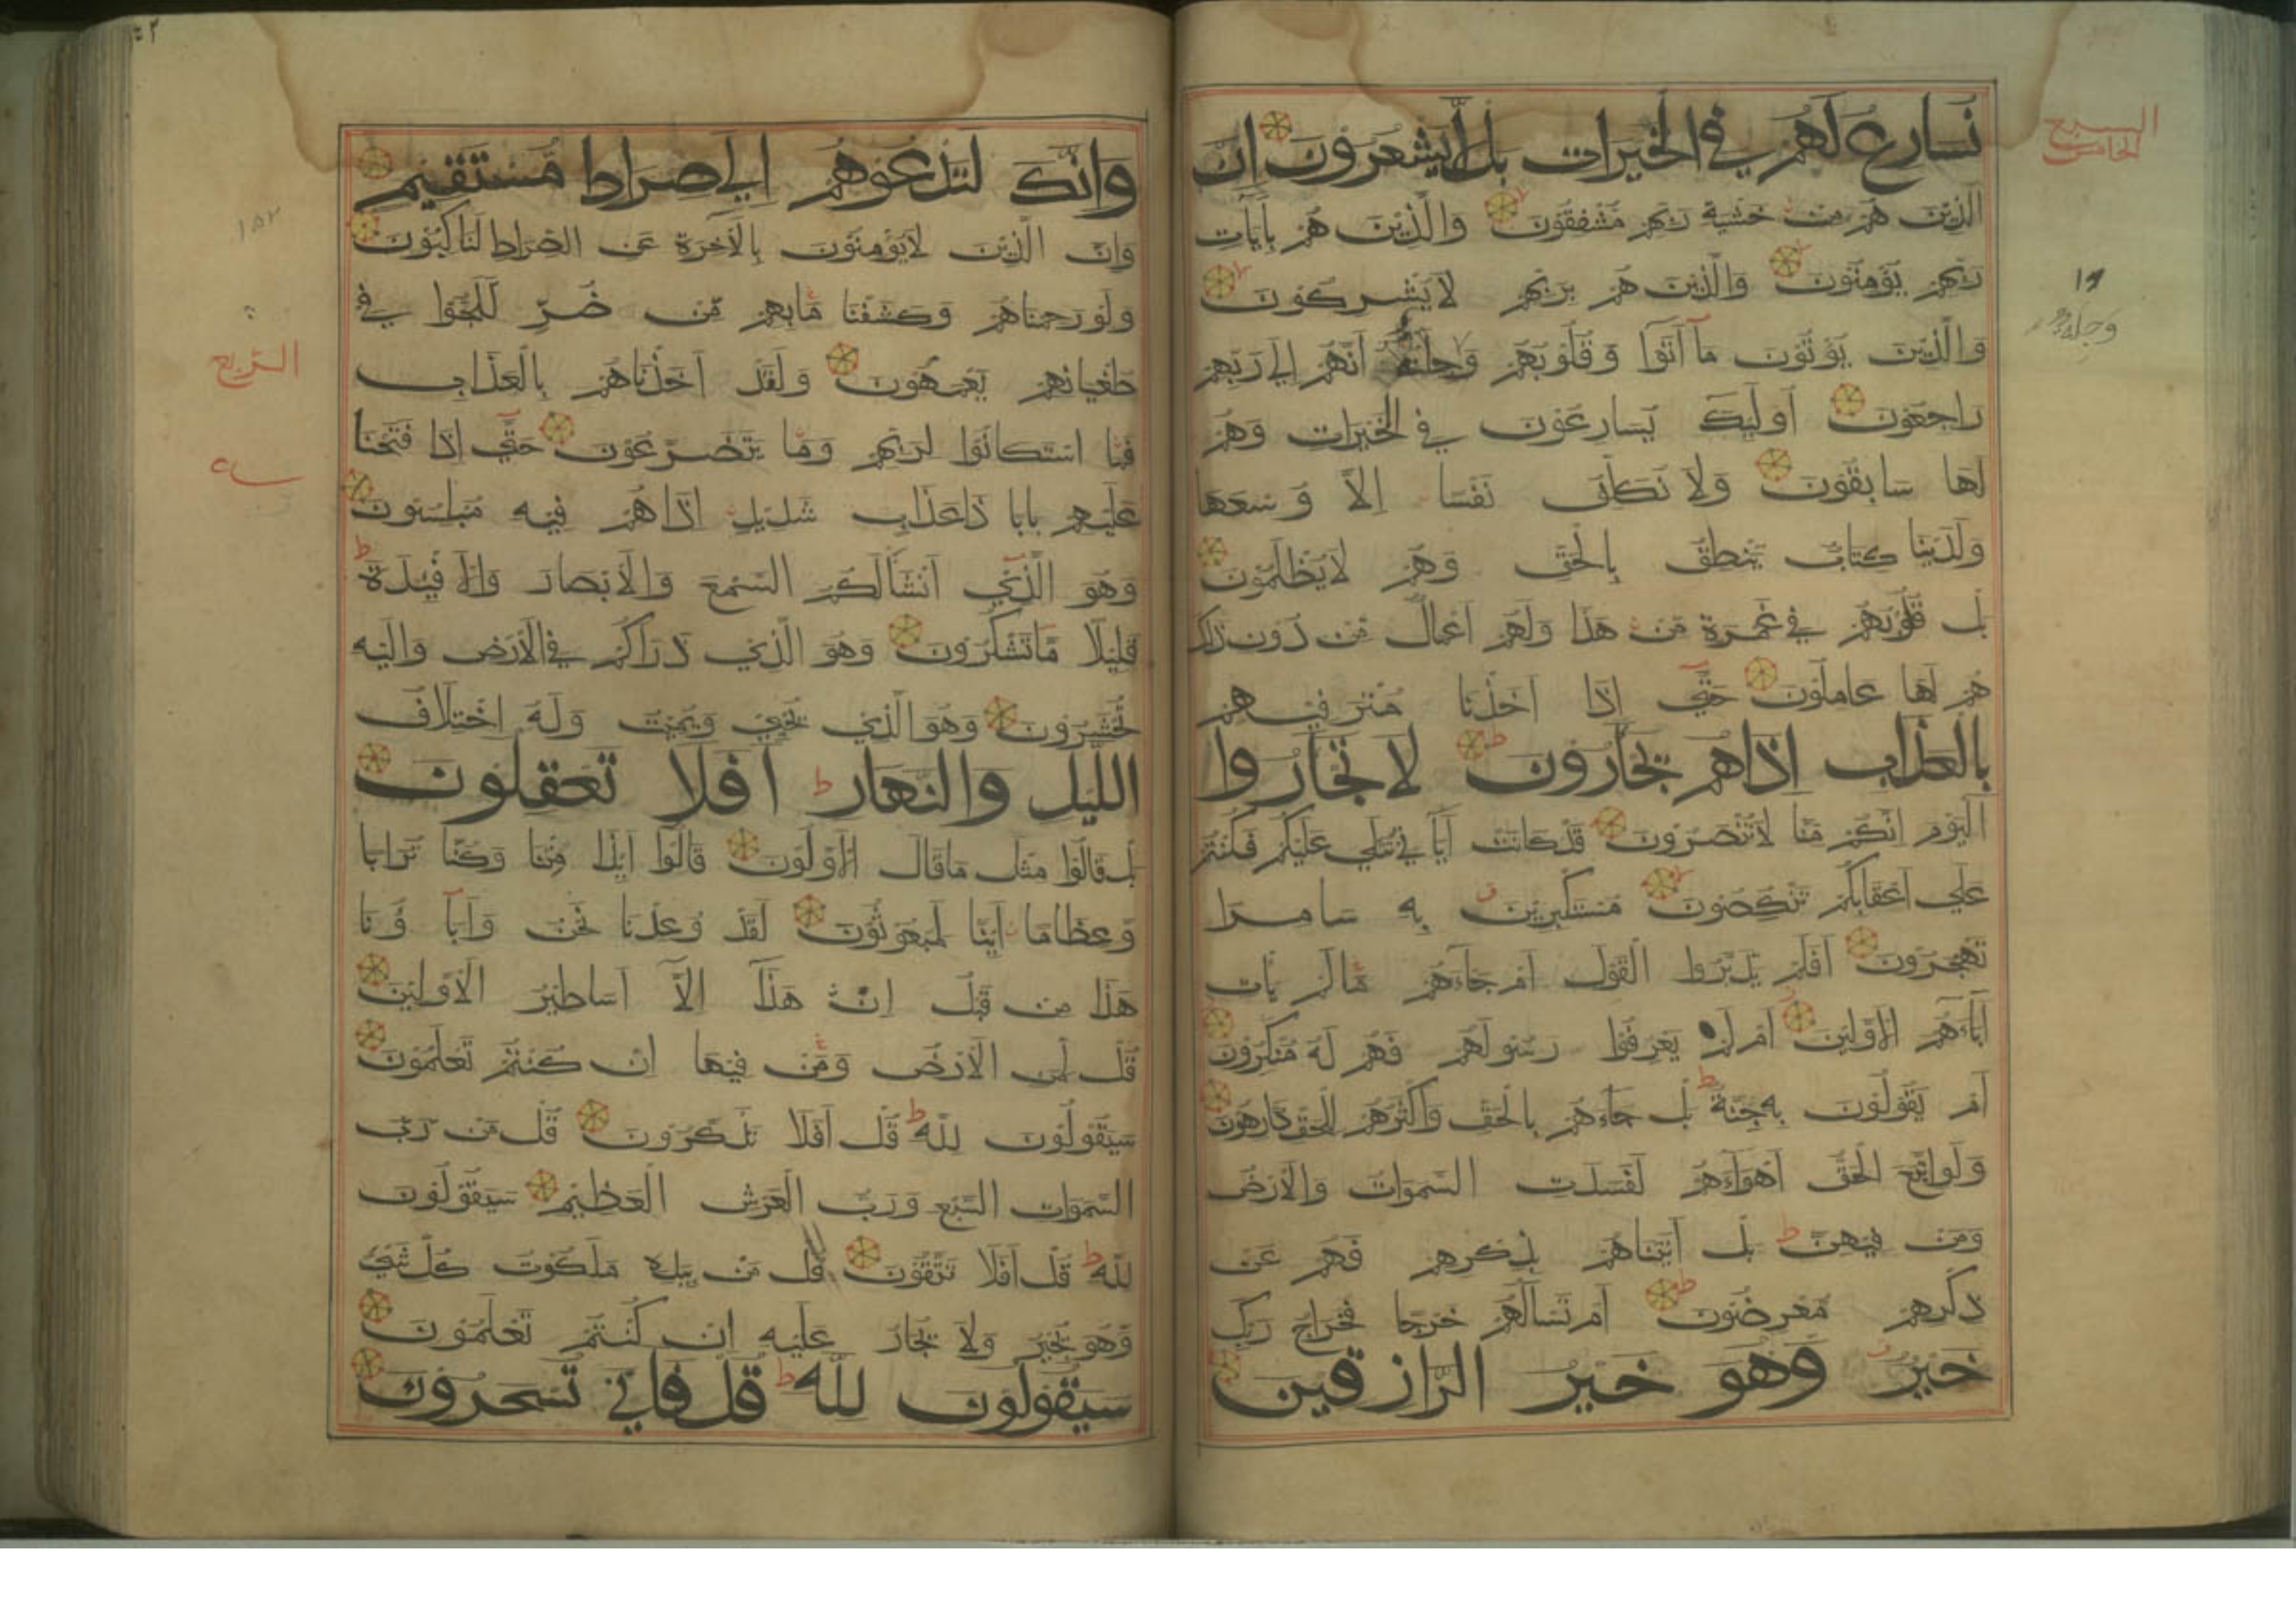 نُسَارِعُ لَهُمْ فِي الْخَيْرَاتِ بَل لَّا يَشْعُرُونَ إِنَّ
الَّذِينَ هُمْ مِنْ خَشْيَةِ رَبِّهِمْ مُشْفِقُونَ وَالَّذِينَ هُمْ بِآيَاتِ
رَبِّهِمْ يُؤْمِنُونَ وَالَّذِينَ هُمْ بِرَبِّهِمْ لَا يُشْرِكُونَ
وَالَّذِينَ يُؤْتُونَ مَآ آتَوْا وَقُلُوبُهُمْ وَجِلَةٌ أَنَّهُمْ إِلَى رَبِّهِمْ
رَاجِعُونَ أُولَئِكَ يُسَارِعُونَ فِي الْخَيْرَاتِ وَهُمْ
لَهَا سَابِقُونَ وَلَا نُكَلِّفُ نَفْسًا إِلَّا وُسْعَهَا
وَلَدَيْنَا كِتَابٌ يَنْطِقُ بِالْحَقِّ وَهُمْ لَا يُظْلَمُونَ
بَلْ قُلُوبُهُمْ فِي غَمْرَةٍ مِّنْ هَذَا وَلَهُمْ أَعْمَالٌ مِّنْ دُونِ ذَلِكَ
هُمْ لَهَا عَامِلُونَ حَتَّى إِذَا أَخَذْنَا مُتْرَفِيهِمْ
بِالْعَذَابِ إِذَا هُمْ يَجْأَرُونَ لَا تَجْأَرُوا
الْيَوْمَ إِنَّكُمْ مِّنَّا لَا تُنْصَرُونَ قَدْ كَانَتْ آيَاتِي تُتْلَى عَلَيْكُمْ فَكُنْتُمْ
عَلَى أَعْقَابِكُمْ تَنْكِصُونَ مُسْتَكْبِرِينَ بِهِ سَامِرًا
تَهْجُرُونَ أَفَلَمْ يَدَّبَّرُوا الْقَوْلَ أَمْ جَاءَهُمْ مَّا لَمْ يَأْتِ
آبَاءَهُمُ الْأَوَّلِينَ أَمْ لَمْ يَعْرِفُوا رَسُولَهُمْ فَهُمْ لَهُ مُنْكِرُونَ
أَمْ يَقُولُونَ بِهِ جِنَّةٌ بَلْ جَاءَهُمْ بِالْحَقِّ وَأَكْثَرُهُمْ لِلْحَقِّ كَارِهُونَ
وَلَوِ اتَّبَعَ الْحَقُّ أَهْوَاءَهُمْ لَفَسَدَتِ السَّمَوَاتُ وَالْأَرْضُ
وَمَنْ فِيهِنَّ بَلْ أَتَيْنَاهُمْ بِذِكْرِهِمْ فَهُمْ عَنْ
ذِكْرِهِمْ مُعْرِضُونَ أَمْ تَسْأَلُهُمْ خَرْجًا فَخَرَاجُ رَبِّكَ
خَيْرٌ وَهُوَ خَيْرُ الرَّازِقِينَ
السبع
الخامس
١٩
وجلة
وَإِنَّكَ لَتَدْعُوهُمْ إِلَى صِرَاطٍ مُّسْتَقِيمٍ
وَإِنَّ الَّذِينَ لَا يُؤْمِنُونَ بِالْآخِرَةِ عَنِ الصِّرَاطِ لَنَاكِبُونَ
وَلَوْ رَحِمْنَاهُمْ وَكَشَفْنَا مَا بِهِمْ مِّنْ ضُرٍّ لَّلَجُّوا فِي
طُغْيَانِهِمْ يَعْمَهُونَ وَلَقَدْ أَخَذْنَاهُمْ بِالْعَذَابِ
فَمَا اسْتَكَانُوا لِرَبِّهِمْ وَمَا يَتَضَرَّعُونَ حَتَّى إِذَا فَتَحْنَا
عَلَيْهِمْ بَابًا ذَا عَذَابٍ شَدِيدٍ إِذَا هُمْ فِيهِ مُبْلِسُونَ
وَهُوَ الَّذِي أَنْشَأَ لَكُمُ السَّمْعَ وَالْأَبْصَارَ وَالْأَفْئِدَةَ
قَلِيلًا مَّا تَشْكُرُونَ وَهُوَ الَّذِي ذَرَأَكُمْ فِي الْأَرْضِ وَإِلَيْهِ
تُحْشَرُونَ وَهُوَ الَّذِي يُحْيِي وَيُمِيتُ وَلَهُ اخْتِلَافُ
اللَّيْلِ وَالنَّهَارِ أَفَلَا تَعْقِلُونَ
بَلْ قَالُوا مِثْلَ مَا قَالَ الْأَوَّلُونَ قَالُوا أَئِذَا مِتْنَا وَكُنَّا تُرَابًا
وَّعِظَامًا أَئِنَّا لَمَبْعُوثُونَ لَقَدْ وُعِدْنَا نَحْنُ وَآبَآؤُنَا
هَذَا مِنْ قَبْلُ إِنْ هَذَآ إِلَّآ أَسَاطِيرُ الْأَوَّلِينَ
قُلْ لِمَنِ الْأَرْضُ وَمَنْ فِيهَا إِنْ كُنْتُمْ تَعْلَمُونَ
سَيَقُولُونَ لِلَّهِ قُلْ أَفَلَا تَذَكَّرُونَ قُلْ مَنْ رَّبُّ
السَّمَوَاتِ السَّبْعِ وَرَبُّ الْعَرْشِ الْعَظِيمِ سَيَقُولُونَ
لِلَّهِ قُلْ أَفَلَا تَتَّقُونَ قُلْ مَنْ بِيَدِهِ مَلَكُوتُ كُلِّ شَيْءٍ
وَّهُوَ يُجِيرُ وَلَا يُجَارُ عَلَيْهِ إِنْ كُنْتُمْ تَعْلَمُونَ
سَيَقُولُونَ لِلَّهِ قُلْ فَأَنَّى تُسْحَرُونَ
١٥٢
الربع